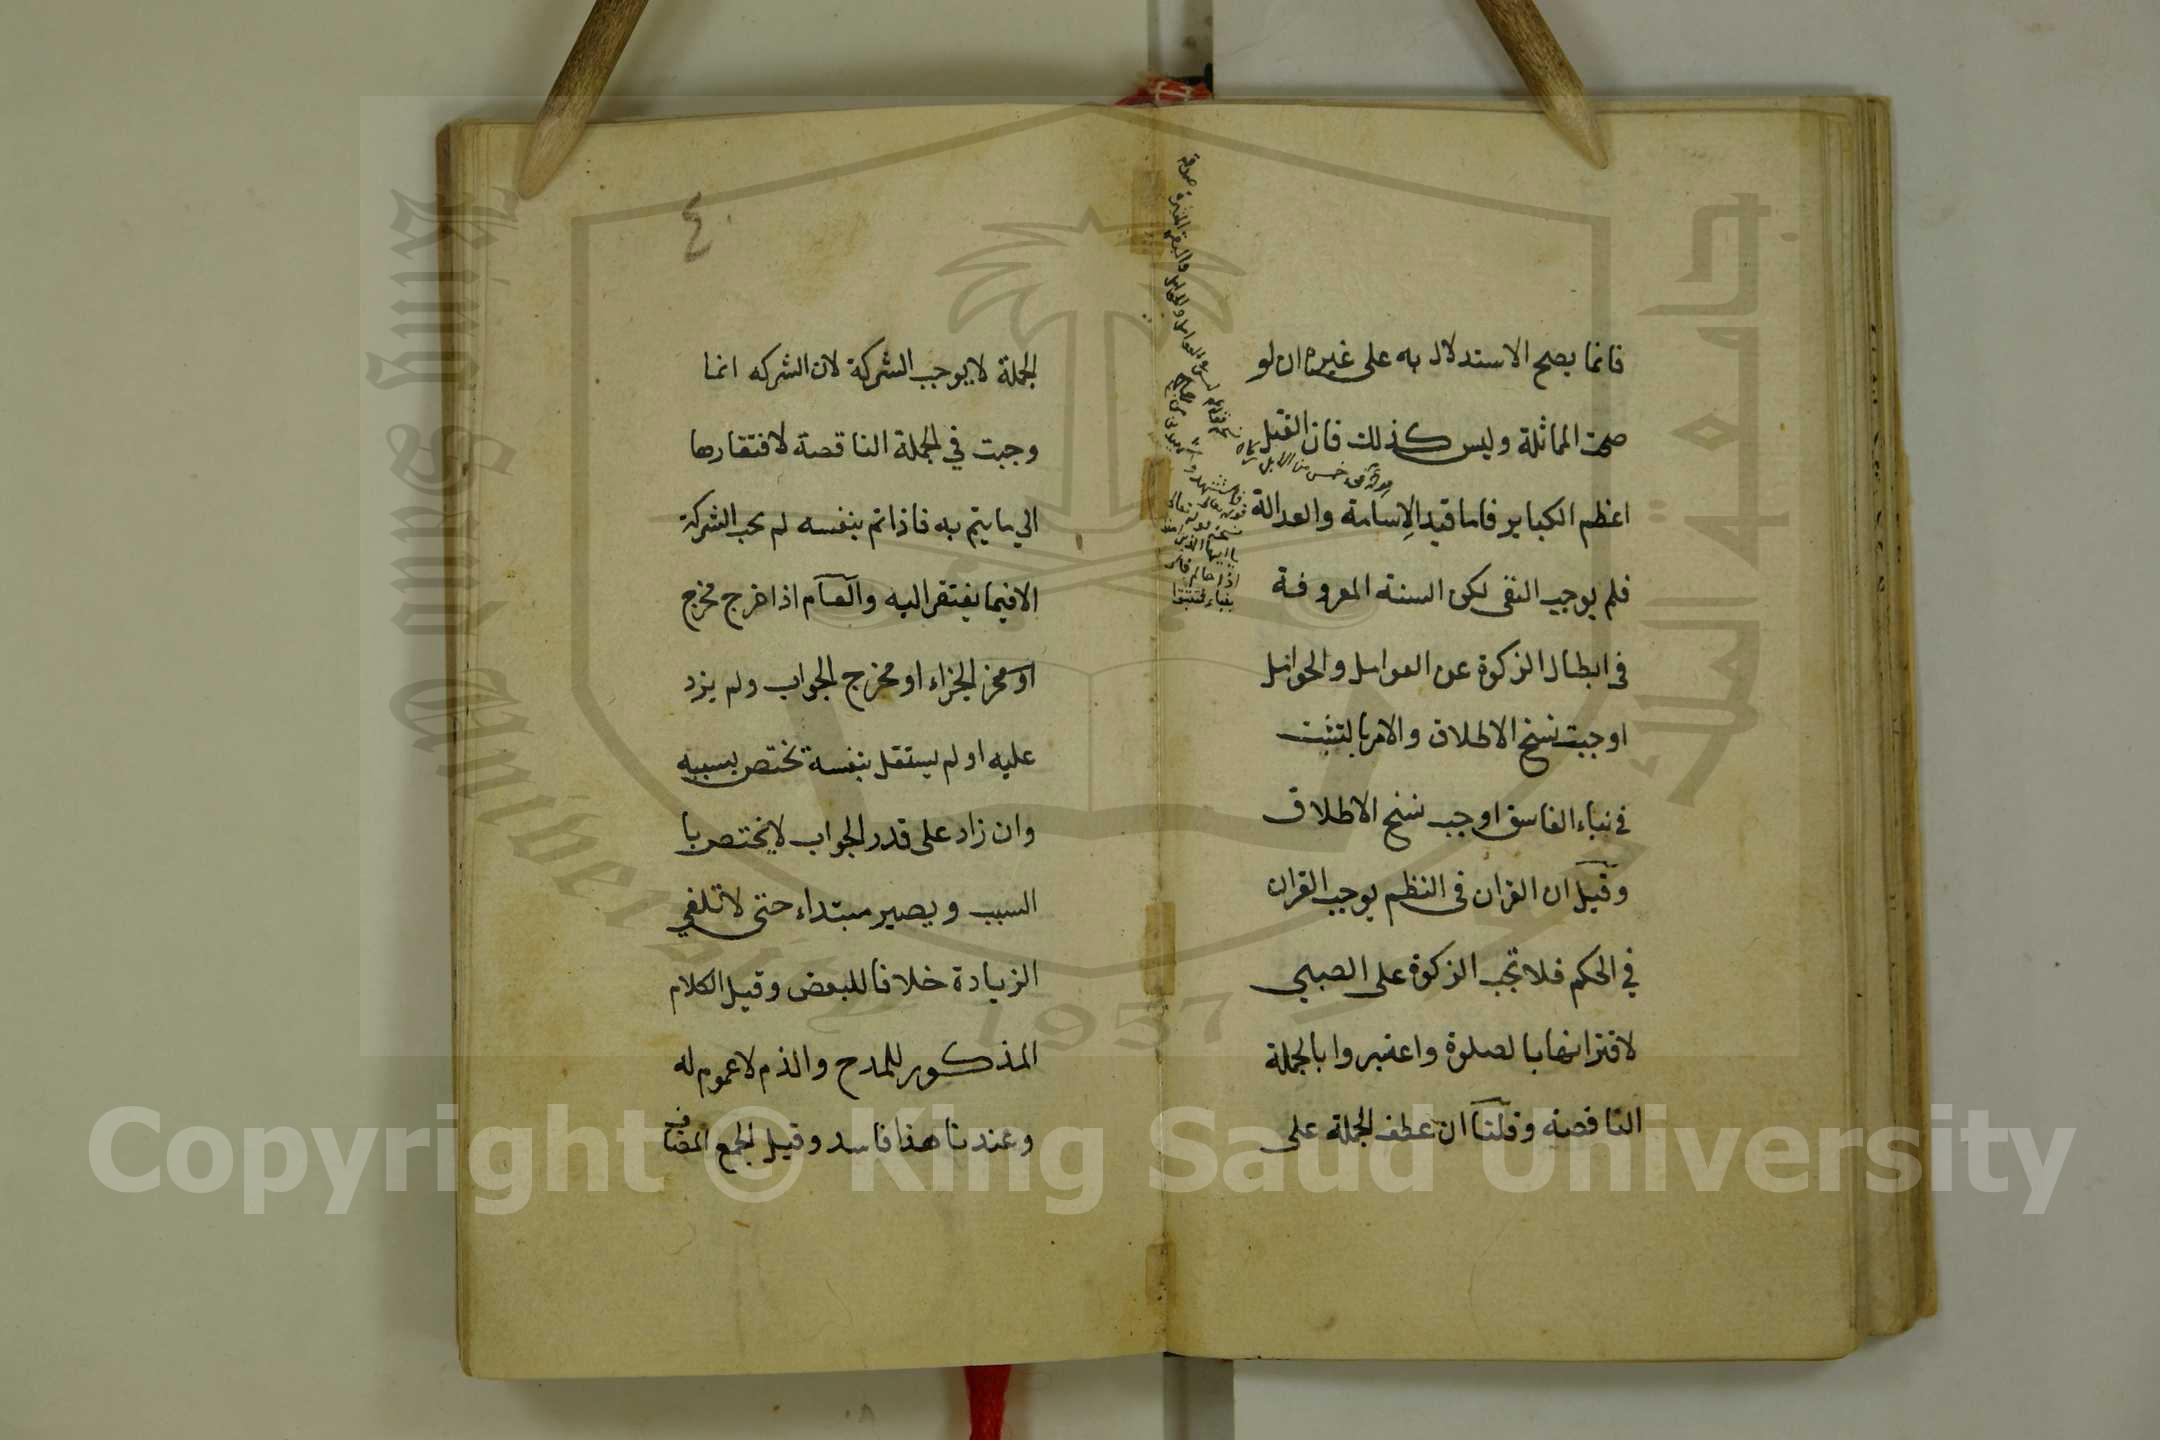 فانما يصح الاستدلال به على غيره ان لو
صحت المماثلة وليس كذلك فان القتل
اعظم الكباير فاما قيد الاسامة والعدالة
فلم يوجب النفى لكن السنة المعروفة
فى ابطال الزكوة عن العوامل والحوامل
اوجبت نسخ الاطلاق والامر بالتثبت
فى نباء الفاسق اوجب نسخ الاطلاق
وقيل ان القران فى النظم يوجب القران
في الحكم فلا تجب الزكوة على الصبي
لاقترانها بالصلوة واعتبروا بالجملة
الناقصة وقلنا ان عطف الجملة على
في خمس من الابل
يا ايها الذين
٤
الجملة لا يوجب الشركة لان الشركه انما
وجبت في الجملة الناقصة لافتقارها
الي ما يتم به فاذا تم بنفسه لم تجب الشركة
الا فيما يفتقر اليه والعام اذا خرج مخرج
الجزاء او مخرج الجواب ولم يزد
عليه او لم يستقل بنفسه تختص بسببه
وان زاد على قدر الجواب لا يختص با
السبب ويصير مبتداء حتى لا تلغي
الزيادة خلافا للبعض وقيل الكلام
المذكور للمدح والذم لا عموم له
وعندنا هذا فاسد وقيل الجمع المضاف
King Saud University
جامعة الملك سعود
1957
Copyright © King Saud University